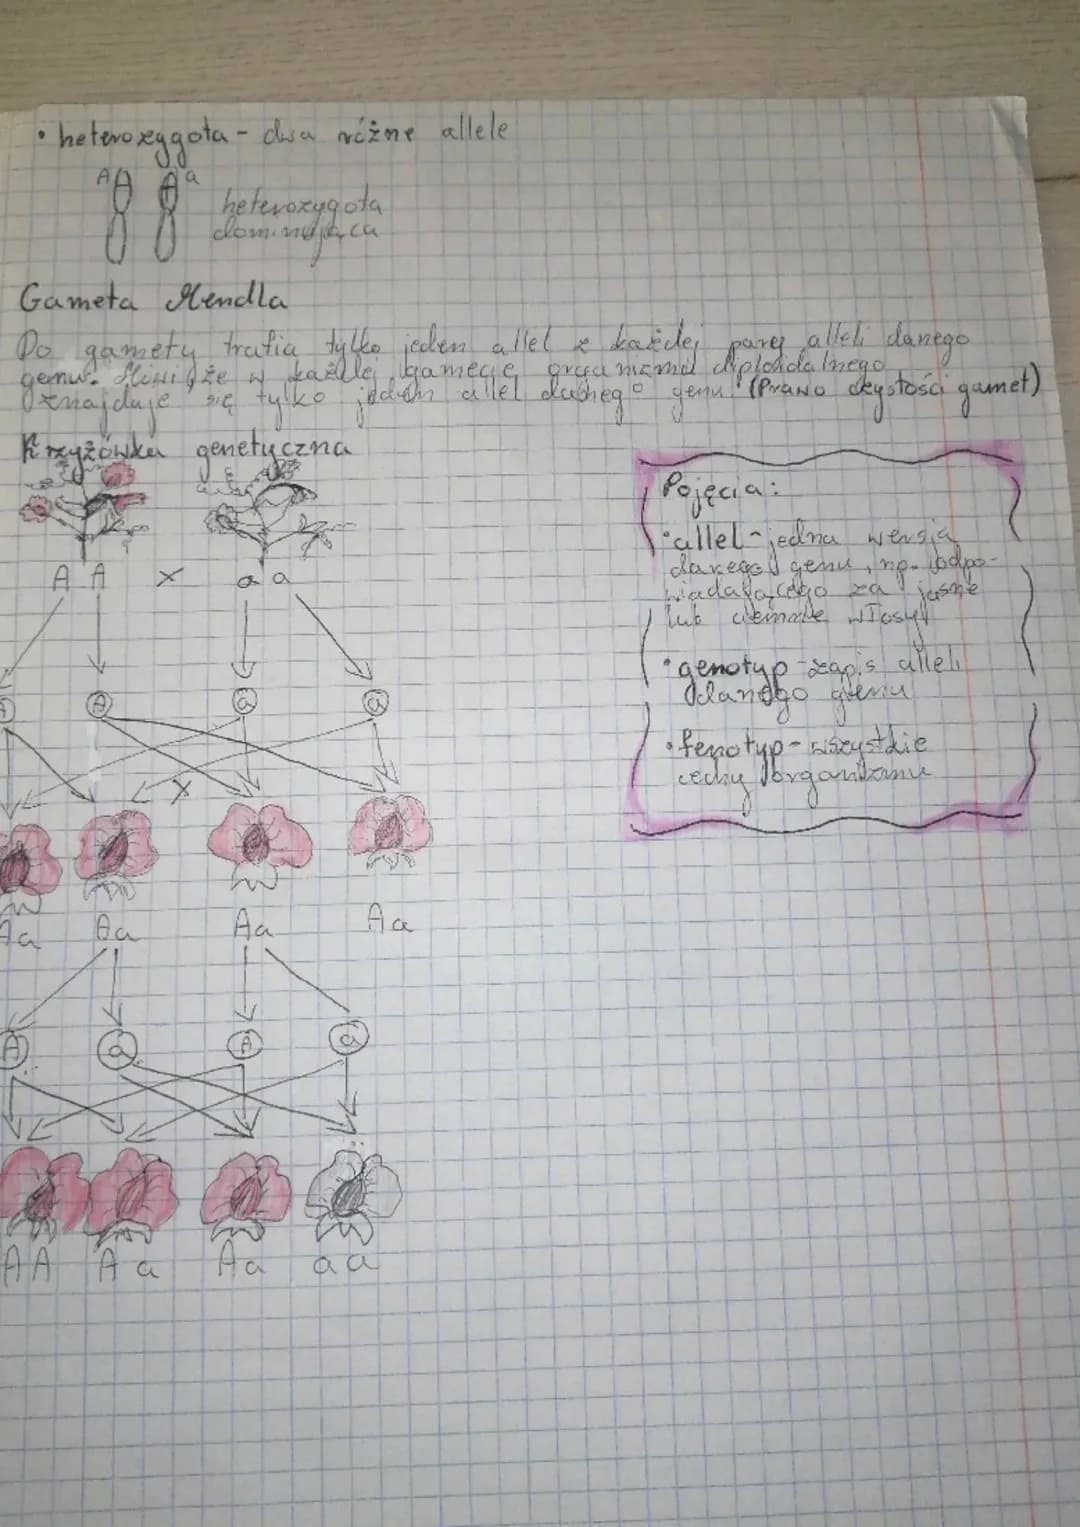 • heterozygota - dwa różne allele
A a
heterozygota
dominująca
Gameta Mendla
Do gamety trafia tylko jeden allel z każdej pary alleli danego
genu. Mówi że w każdej gamecie organizmu diploidalnego
znajduje się tylko jeden allel danego genu. (Prawo czystości gamet)
Krzyżówka genetyczna
A A x a a
A a a
x
Aa Aa Aa Aa
A a A a
AA Aa Aa aa
Pojęcia:
• allel - jedna wersja
danego genu, np. odpo-
wiadającego za jasne
lub ciemne włosy
• genotyp - zapis alleli
danego genu
• fenotyp - wszystkie
cechy organizmu